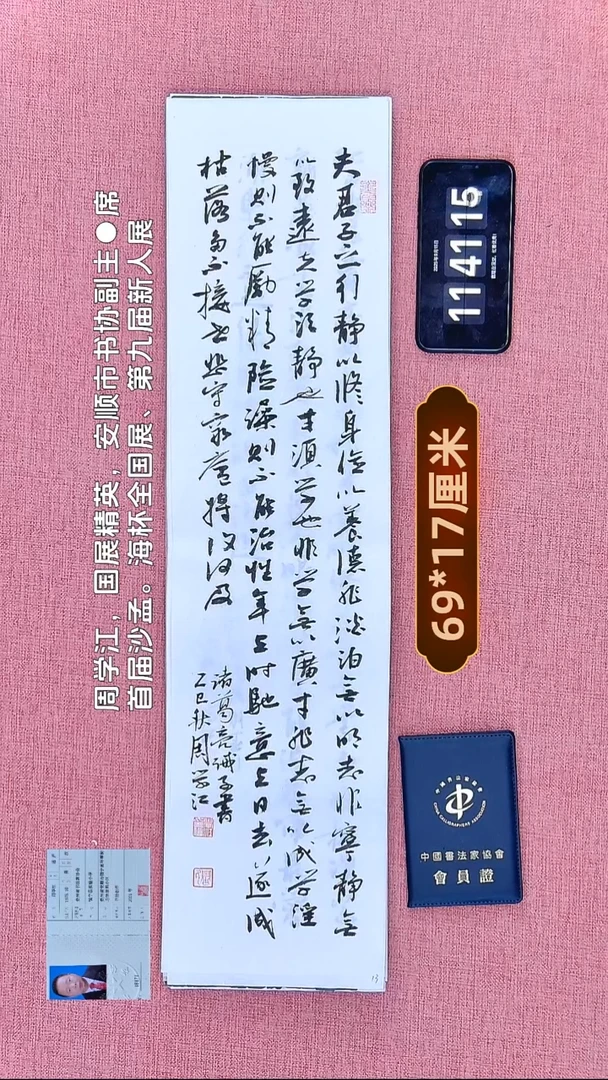 周学江，国展精英，安顺市书协副主●席
首届沙孟。海杯全国展、第九届新人展
夫君子之行静以脩身俭以養德非淡泊无以明志非寧静无
以致遠夫学须静也才須学也非学无以廣才非志无以成学淫
慢则不能励精险躁则不能治性年与时馳意与日去遂成
枯落多不接世悲守穷廬将復何及
诸葛亮诫子書
乙巳秋周学江
11 41 15
69*17厘米
中國書法家協會
會員證